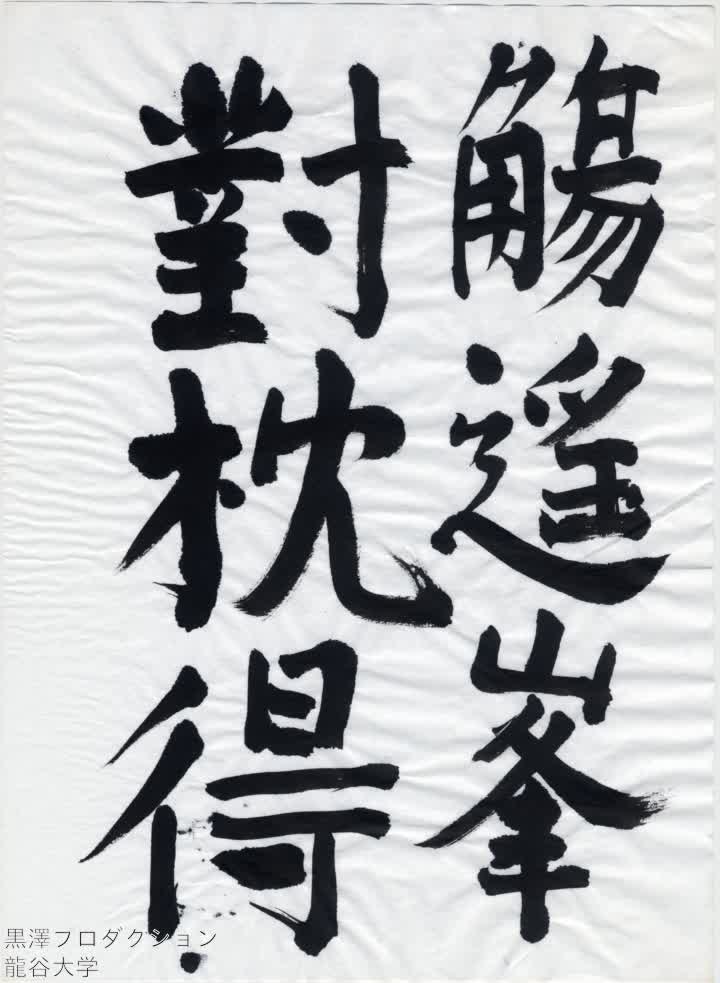 觴遥峯
對枕得
黒澤プロダクション
龍谷大学